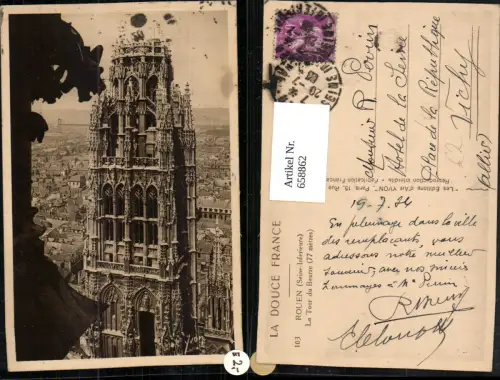 Artikel Nr.
658862
LA DOUCE FRANCE
103 ROUEN (Seine-Inférieure)
La Tour du Beurre (77 mètres)
"Les Éditions d'Art YVON" Paris, 15, Rue
Reproduction interdite - Fabrication Française
Monsieur R
Hotel de la Seine
Place de la République
Vichy
(Allier)
19-7.34
En pèlerinage dans la ville
des remplaçants, vous
adressons notre meilleur
souvenir, avec nos
hommages à Mme
2,-